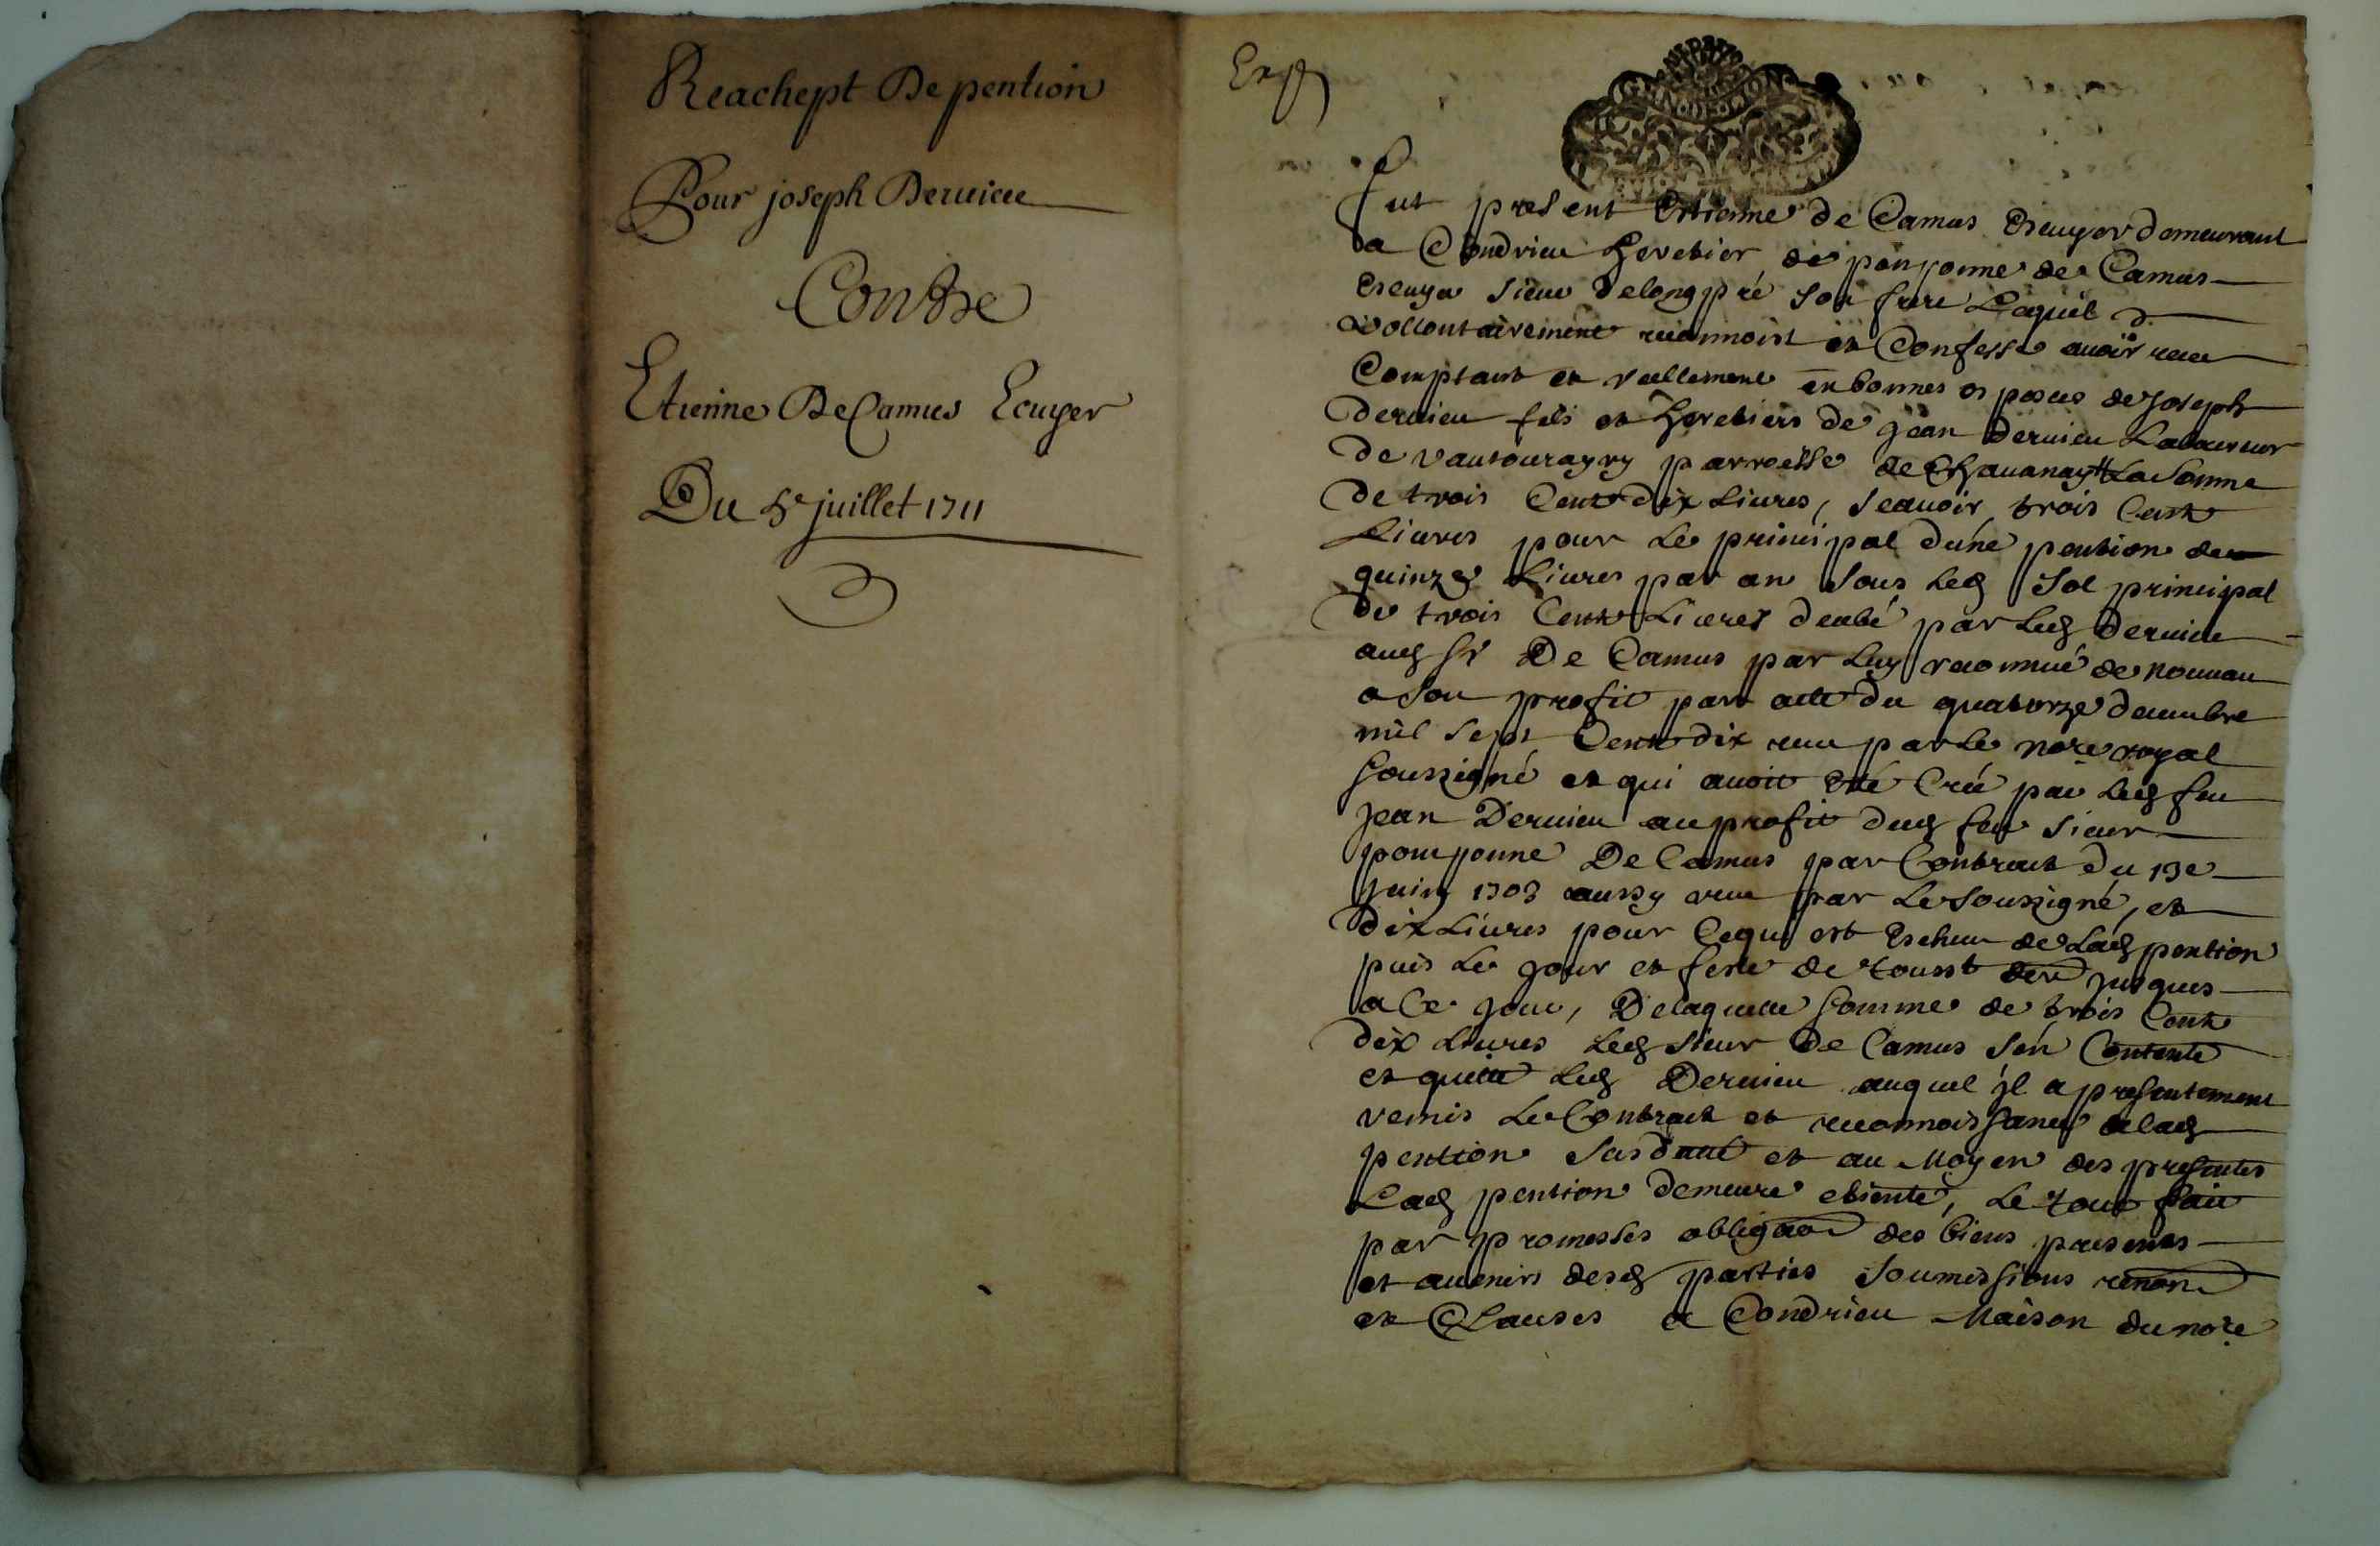 Reachept De pention
Pour joseph Deruieu
Contre
Etienne De Camus Ecuyer
Du 5e juillet 1711
Exp
GEN DE LYON
Fut present Estienne de Camus Escuyer demeurant
a Condrieu heretier de ponponne de Camus
Escuyer sieur delongpré son frere Lequel
vollontairement reconnoist et Confesse auoir receu
Comptant et reellement en bonnes especes de Joseph
deruieu fils et heretiers de jean deruieu Laboureur
de vautouragny parroisse de Chauanay La Somme
de trois Cent dix Liures, scauoir trois Cent
Liures pour Le principal d'une pention de
quinze Liures par an sous led Sol principal
de trois Cent Liures deubé par Led deruieu
aud sr De Camus par Luy reconnué de nouueau
a son profit par acte du quatorze decembre
mil sept Cent dix receu par Le nore royal
soussigné et qui auoit Esté Créé par Led feu
jean Deruieu au profit dud feu sieur
pomponne De Camus par Contract du 13e
juin 1703 aussy receu par Le soussigné, et
dix Liures pour Cequi est Escheu de Lad pention
puis Le jour et feste de toussts der jusques
a Ce jour, Delaquelle somme de trois Cent
dix Liures Led sieur De Camus s'en Contente
et quitte Led Deruieu auquel jl a presentement
remis Le Contract et reconnoissance delad
pention susdatté et au Moyen des presentes
Lad pention demeure etiente, Le tout fait
par promesses obligaon des biens presents
et auenirs desd parties soumissions renon
et Clauses a Condrieu Maison du nore